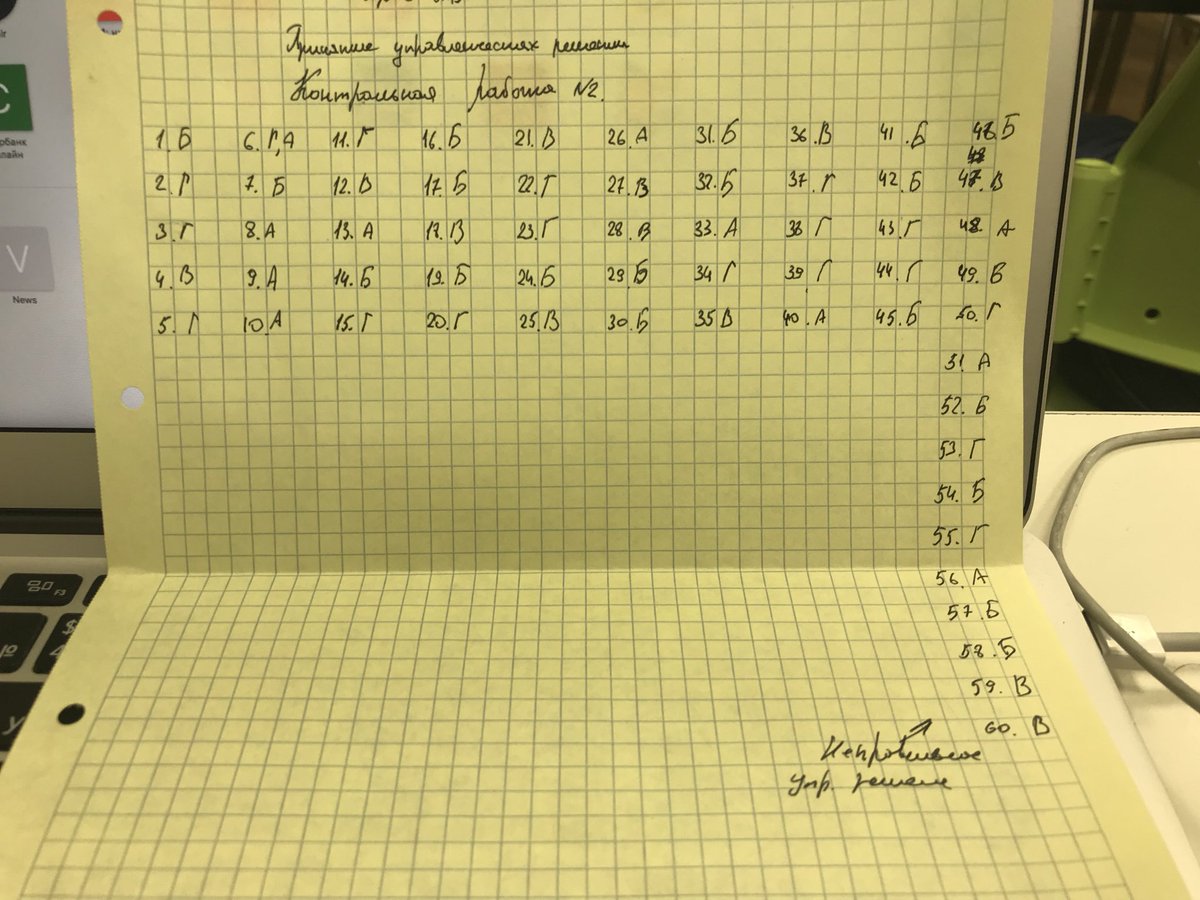 Принятие управленческих решений
Контрольная работа №2.
1. Б 6. Г,А 11. Г 16. Б 21. В 26. А 31. Б 36. В 41. Б 46. Б
2. Г 7. Б 12. В 17. Б 22. Г 27. В 32. Б 37. Г 42. Б 47. В
3. Г 8. А 13. А 18. В 23. Г 28. В 33. А 38 Г 43. Г 48. А
4. В 9. А 14. Б 19. Б 24. Б 29. Б 34 Г 39 Г 44. Г 49. В
5. Г 10. А 15. Г 20. Г 25. В 30. Б 35 В 40. А 45. Б 50. Г
51. А
52. Б
53. Г
54. Б
55. Г
56. А
57. Б
58. Б
59. В
60. В
Неправильное
упр. решение
News
V
F3
$
4
№
У
C